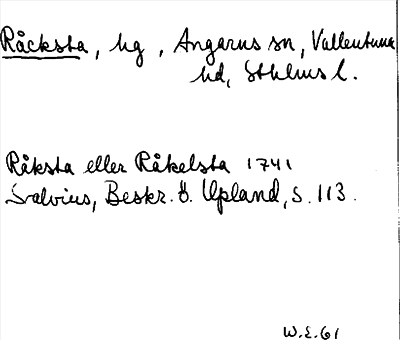 Råcksta, hg, Angarns sn, Vallentuna
hd, Sthlms l.
Råksta eller Råkelsta 1741
Salvius, Beskr. ö. Upland, s. 113.
W.E. 61